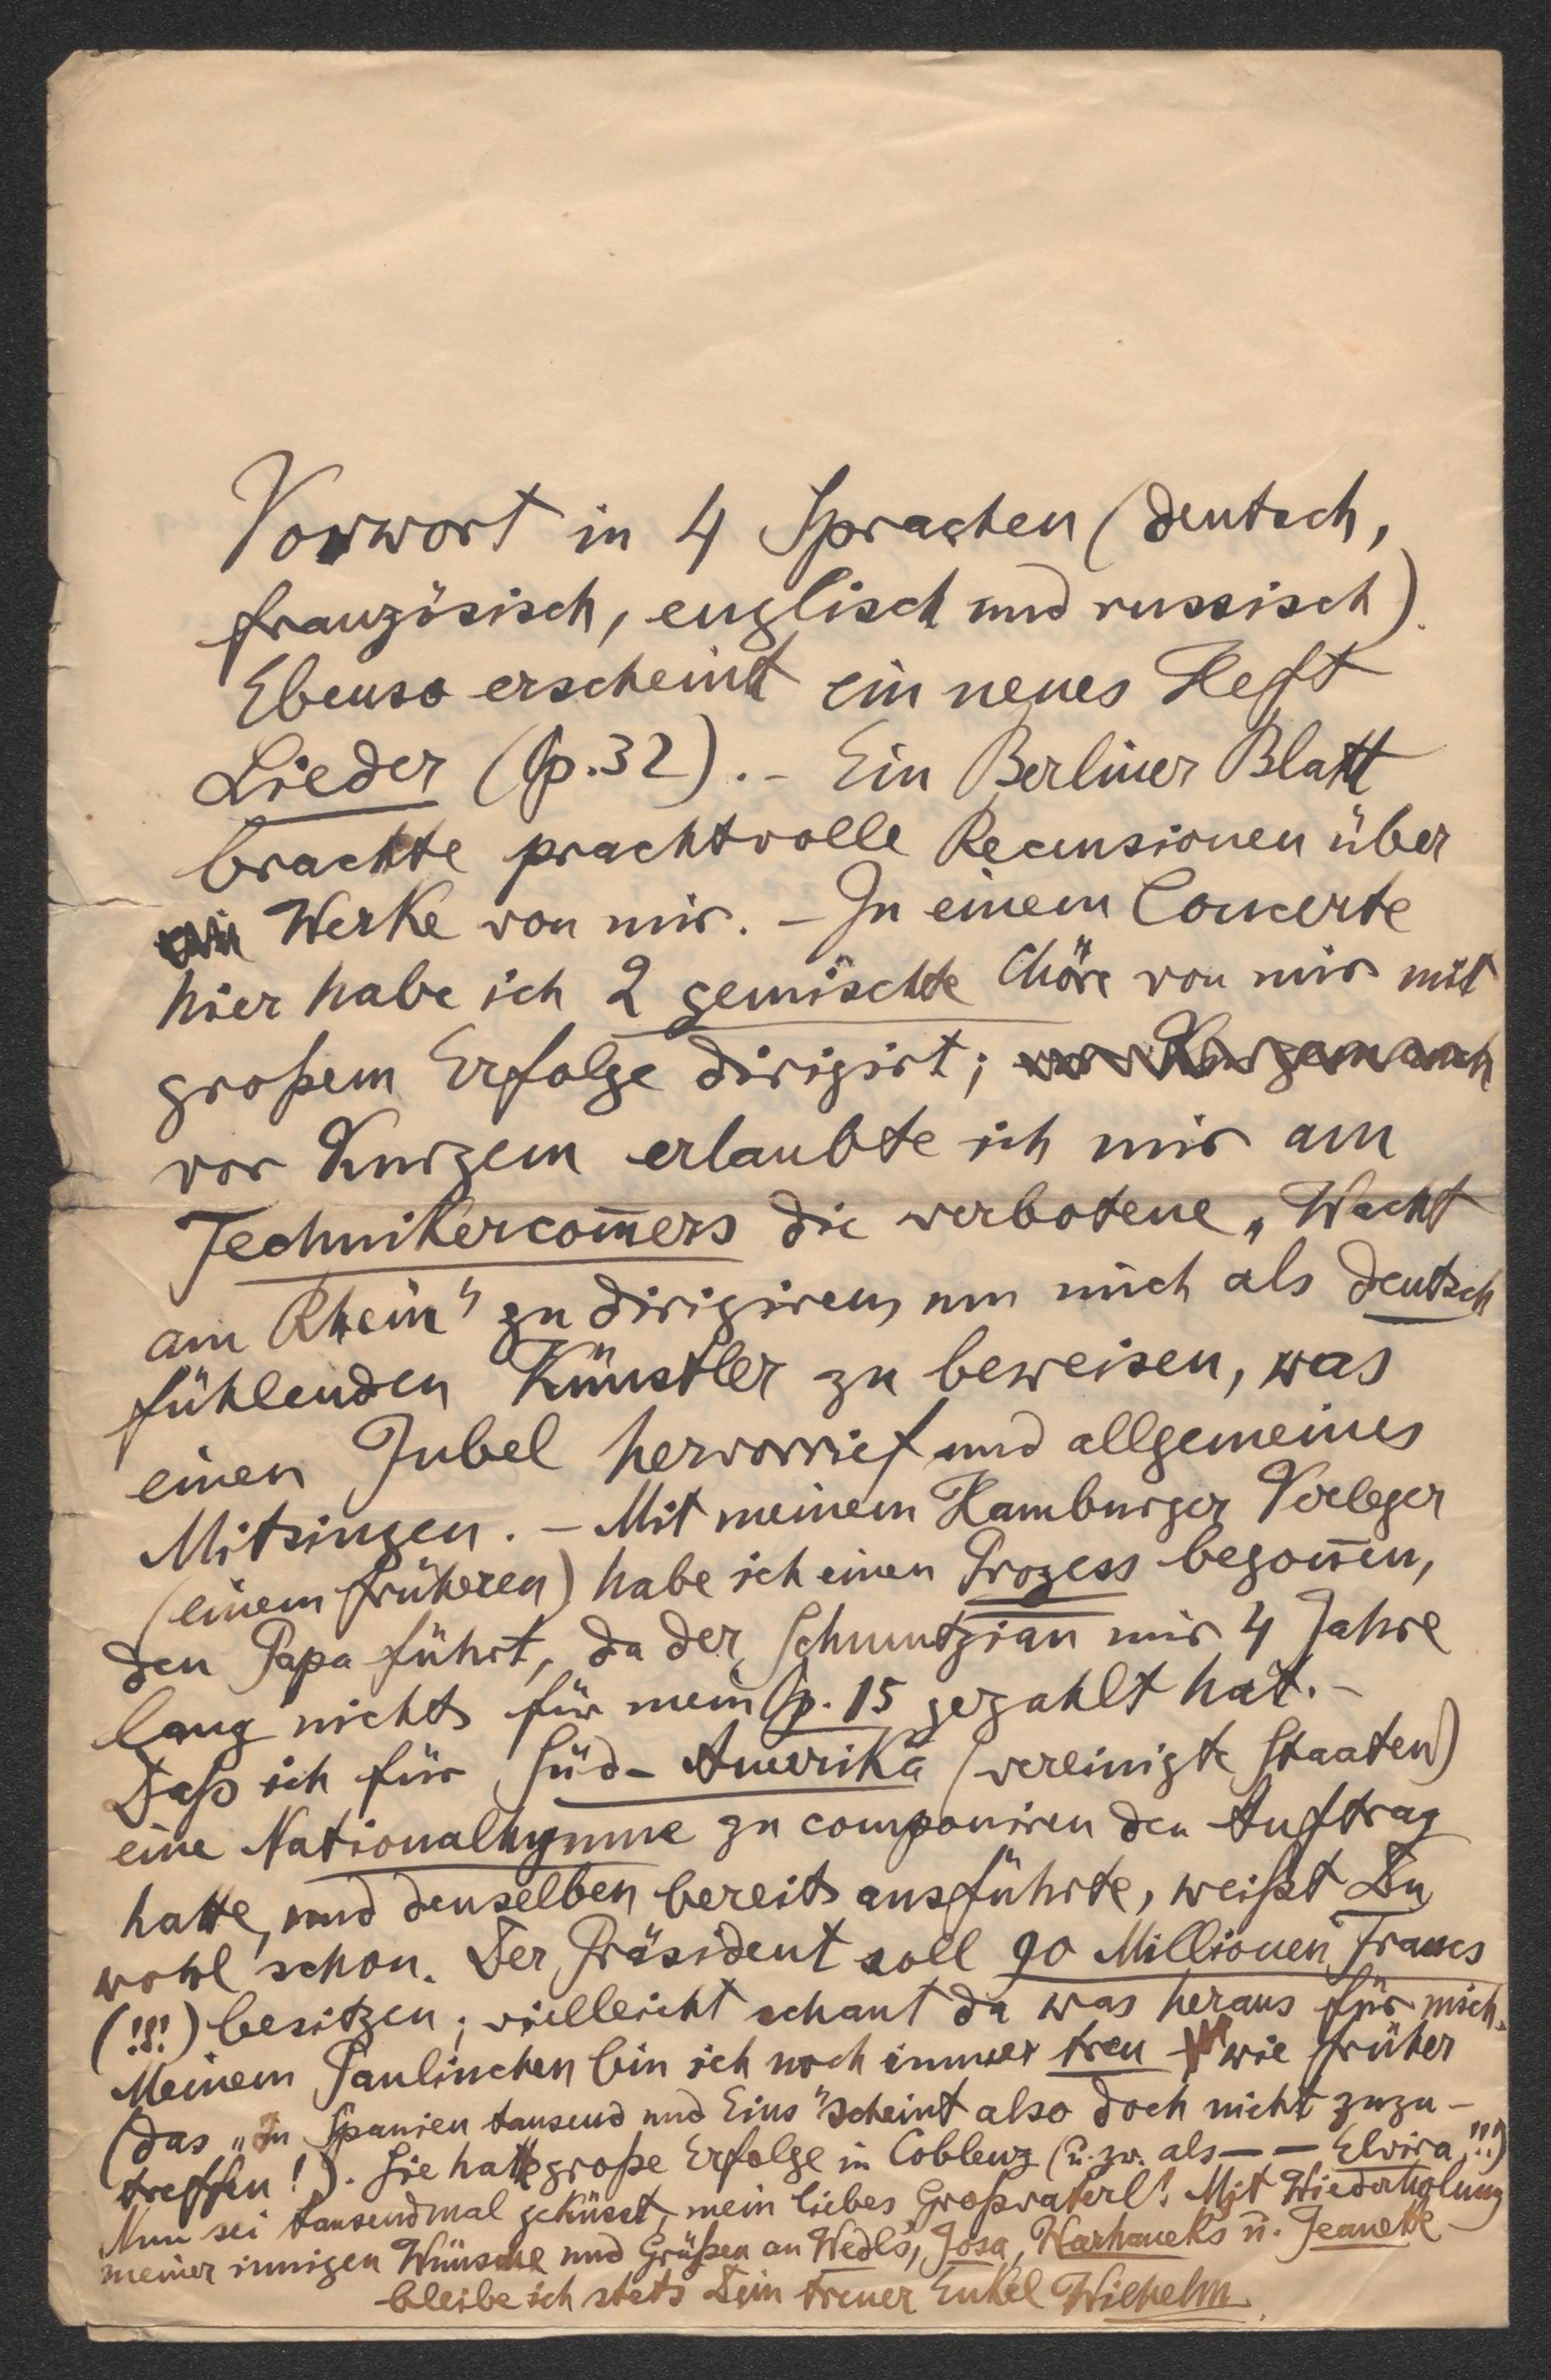 Vorwort in 4 Sprachen (deutsch,
französisch, englisch und russisch).
Ebenso erscheint ein neues Heft
Lieder (Op. 32). – Ein Berliner Blatt
brachte prachtvolle Recensionen über
Werke von mir. – In einem Concerte
hier habe ich 2 gemischte Chöre von mir mit
großem Erfolge dirigirt; vor Kurzem auch
vor Kurzem erlaubte ich mir am
Technikercom̅ers die verbotene „Wacht
am Rhein" zu dirigiren, um mich als deutsch
fühlenden Künstler zu beweisen, was
einen Jubel hervorrief und allgemeines
Mitsingen. – Mit meinem Hamburger Verleger
(einem früheren) habe ich einen Prozess begon̅en,
den Papa führt, da der Schmutzian mir 4 Jahre
lang nichts für mein Op. 15 gezahlt hat. –
Daß ich für Süd-Amerika (vereinigte Staaten)
eine Nationalhymne zu componiren den Auftrag
hatte, und denselben bereits ausführte, weißt Du
wohl schon. Der Präsident soll 90 Millionen Francs
(!!!) besitzen; vielleicht schaut da was heraus für mich.
Meinem Paulinchen bin ich noch immer treu wie früher
(das „In Spanien tausend und Eins" scheint also doch nicht zuzu-
treffen!). Sie hatte große Erfolge in Coblenz (u. zw. als – – Elvira!!!)
Nun sei tausendmal geküsst, mein liebes Großvaterl! Mit Wiederholung
meiner innigen Wünsche und Grüßen an Wedl's, Josa, Harhaneks u. Jeanette
bleibe ich stets Dein treuer Enkel Wilhelm.